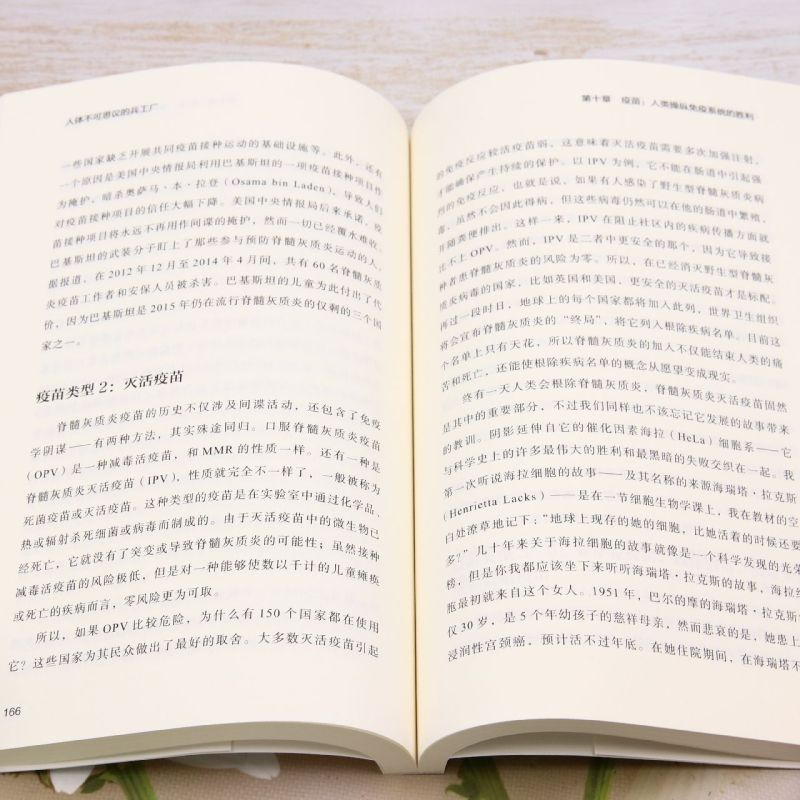 人体不可思议的兵工厂
一些国家缺乏开展共同疫苗接种运动的基础设施等。此外，还有
一个原因是美国中央情报局利用巴基斯坦的一项疫苗接种项目作
为掩护，暗杀奥萨马·本·拉登（Osama bin Laden），导致人们
对疫苗接种项目的信任大幅下降。美国中央情报局后来承诺，疫
苗接种项目将永远不再用作间谍的掩护，然而一切已经覆水难收。
巴基斯坦的武装分子盯上了那些参与预防脊髓灰质炎运动的人，
据报道，在 2012 年 12 月至 2014 年 4 月间，共有 60 名脊髓灰质
炎疫苗工作者和安保人员被杀害。巴基斯坦的儿童为此付出了代
价，因为巴基斯坦是 2015 年仍在流行脊髓灰质炎的仅剩的三个国
家之一。
疫苗类型 2：灭活疫苗
脊髓灰质炎疫苗的历史不仅涉及间谍活动，还包含了免疫
学阴谋——有两种方法，其实殊途同归。口服脊髓灰质炎疫苗
（OPV）是一种减毒活疫苗，和 MMR 的性质一样。还有一种是
脊髓灰质炎灭活疫苗（IPV），性质就完全不一样了，一般被称为
死菌疫苗或灭活疫苗。这种类型的疫苗是在实验室中通过化学品、
热或辐射杀死细菌或病毒而制成的。由于灭活疫苗中的微生物已
经死亡，它就没有了突变或导致脊髓灰质炎的可能性；虽然接种
减毒活疫苗的风险极低，但是对一种能够使数以千计的儿童瘫痪
或死亡的疾病而言，零风险更为可取。
所以，如果 OPV 比较危险，为什么有 150 个国家都在使用
它？这些国家为其民众做出了最好的取舍。大多数灭活疫苗引起
166
第十章 疫苗：人类操纵免疫系统的胜利
的免疫反应较活疫苗弱，这意味着灭活疫苗需要多次加强注射，
才能确保产生持续的保护。以 IPV 为例，它不能在肠道中引起强
烈的免疫反应，也就是说，如果有人感染了野生型脊髓灰质炎病
毒，虽然不会因此得病，但这些病毒仍然可以在他的肠道中繁殖，
并随粪便排出。这样一来，IPV 在阻止社区内的疾病传播方面就
比不上 OPV。然而，IPV 是二者中更安全的那个，因为它导致接
种者患脊髓灰质炎的风险为零。所以，在已经消灭野生型脊髓灰
质炎病毒的国家，比如英国和美国，更安全的灭活疫苗才是标配。
再过一段时日，地球上的每个国家都将加入此列，世界卫生组织
将会宣布脊髓灰质炎的“终局”，将它列入根除疾病名单。目前这
个名单上只有天花，所以脊髓灰质炎的加入不仅能结束人类的痛
苦和死亡，还能使根除疾病名单的概念从愿望变成现实。
终有一天人类会根除脊髓灰质炎，脊髓灰质炎灭活疫苗固然
是其中的重要部分，不过我们同样也不该忘记它发展的故事带来
的教训。阴影延伸自它的催化因素海拉（HeLa）细胞系——它
与科学史上的许多最伟大的胜利和最黑暗的失败交织在一起。我
第一次听说海拉细胞的故事——及其名称的来源海瑞塔·拉克斯
（Henrietta Lacks）——是在一节细胞生物学课上，我在教材的空
白处潦草地记下：“地球上现存的她的细胞，比她活着的时候还要
多？”几十年来关于海拉细胞的故事就像是一个科学发现的光荣
榜，但是你我都应该坐下来听听海瑞塔·拉克斯的故事，海拉细
胞最初就来自这个女人。1951 年，巴尔的摩的海瑞塔·拉克斯
仅 30 岁，是 5 个年幼孩子的慈祥母亲，然而悲哀的是，她患上
浸润性宫颈癌，预计活不过年底。在她住院期间，在海瑞塔不